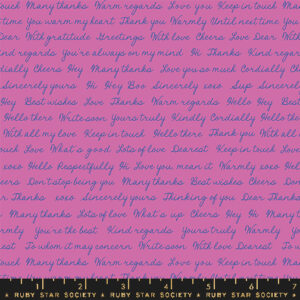 ouch Many thanks Warm regards Love you Keep in touch Many
time You warm my heart Thank you Warmly Until next time You
Dear With gratitude Greetings With love Cheers Love Dear With
ind regards You're always on my mind Hi Thanks Kind regard
dially Cheers Hey Many thanks Love you so much Cordially Che
Sincerely yours Hi Hey Boo Sincerely xoxo Sup Sincerely
Hey Best wishes Love Thanks Warm regards Hello Hey Best
Hello there Write soon Yours truly Kindly Cordially Hello the
With all my love Keep in touch Hello there Thank you With all m
uch Love What's good Lots of love Dearest Keep in touch Love
xoxo Hello Respectfully Hi Love you mean it Warmly xoxo Hel
eers Don't stop being you Many thanks Best wishes Cheers Do
r Thanks xoxo Sincerely yours Thinking of you Dear Thanks
Many thanks Lots of love What's up Cheers Hey Hi Many
rmly You're the best Kind regards Yours truly Warmly Yo
est To whom it may concern Write soon With love Dearest To w
in touch Many thanks Warm regards Love you Keep in touch M
1 2 3 4 5 6 7
RUBY STAR SOCIETY RUBY STAR SOCIETY RUBY STAR SOCIETY